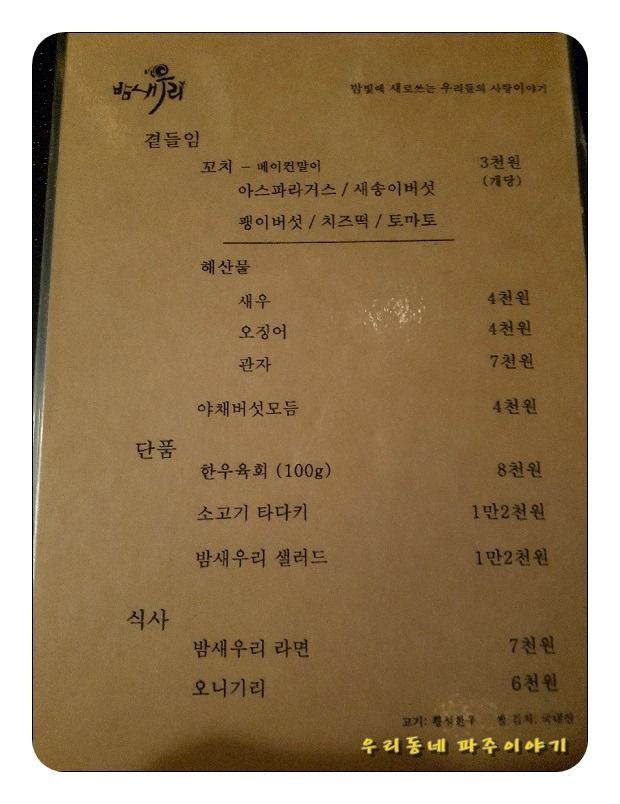 밤새우리
밤빛에 새로쓰는 우리들의 사랑이야기
곁들임
꼬치 - 베이컨말이 3천원
(개당)
아스파라거스 / 새송이버섯
팽이버섯 / 치즈떡 / 토마토
해산물
새우 4천원
오징어 4천원
관자 7천원
야채버섯모듬 4천원
단품
한우육회 (100g) 8천원
소고기 타다키 1만2천원
밤새우리 샐러드 1만2천원
식사
밤새우리 라면 7천원
오니기리 6천원
고기: 횡성한우 쌀,김치: 국내산
우리동네 파주이야기